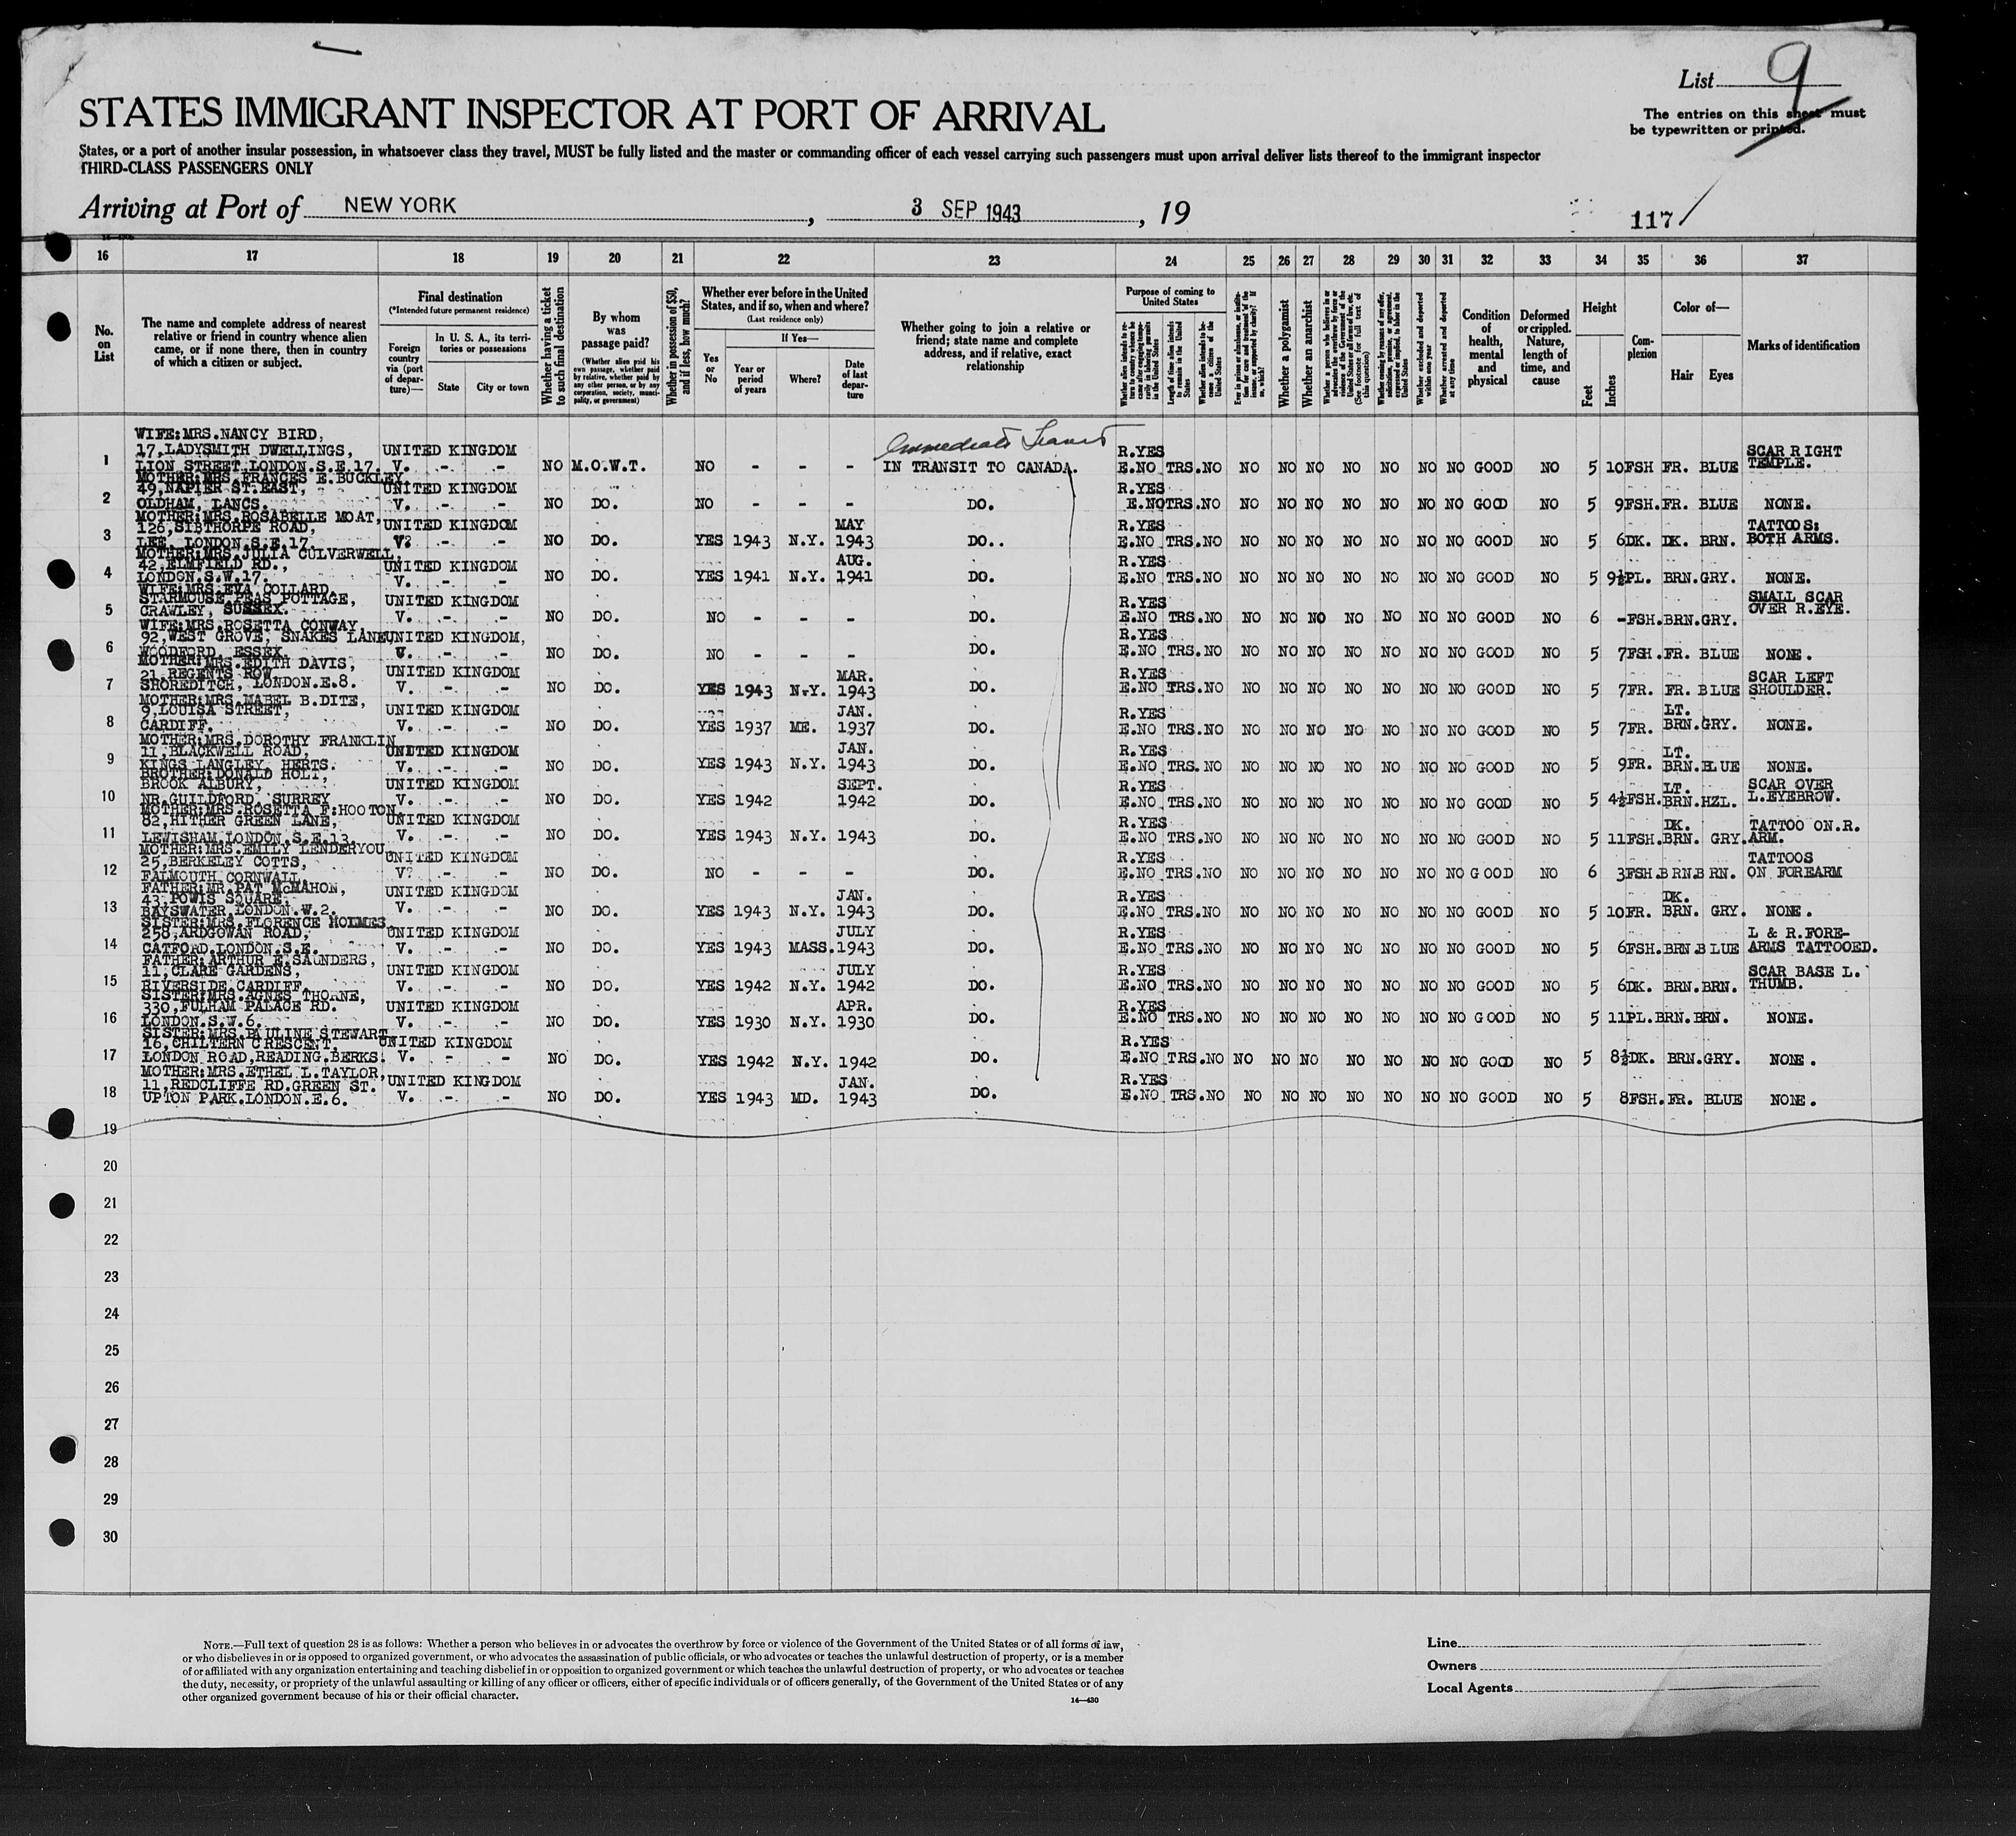 List 9
The entries on this sheet must
be typewritten or printed.
STATES IMMIGRANT INSPECTOR AT PORT OF ARRIVAL
States, or a port of another insular possession, in whatsoever class they travel, MUST be fully listed and the master or commanding officer of each vessel carrying such passengers must upon arrival deliver lists thereof to the immigrant inspector
THIRD-CLASS PASSENGERS ONLY
Arriving at Port of NEW YORK , 3 SEP 1943 , 19
117
16 17 18 19 20 21 22 23 24 25 26 27 28 29 30 31 32 33 34 35 36 37
No. on List
The name and complete address of nearest relative or friend in country whence alien came, or if none there, then in country of which a citizen or subject.
Final destination
(*Intended future permanent residence)
Foreign country via (port of departure)—
In U. S. A., its territories or possessions
State City or town
Whether having a ticket to such final destination
By whom was passage paid?
(Whether alien paid his own passage, whether paid by relative, whether paid by any other person, or by any corporation, society, municipality, or government)
Whether in possession of $50, and if less, how much?
Whether ever before in the United States, and if so, when and where?
(Last residence only)
Yes or No
If Yes—
Year or period of years
Where?
Date of last departure
Whether going to join a relative or friend; state name and complete address, and if relative, exact relationship
Purpose of coming to United States
Length of time alien intends to remain in the United States
Whether alien intends to become a citizen of the United States
Whether a polygamist
Whether an anarchist
Whether excluded and deported within one year
Whether arrested and deported at any time
Condition of health, mental and physical
Deformed or crippled. Nature, length of time, and cause
Height
Feet Inches
Complexion
Color of—
Hair Eyes
Marks of identification
Immediate Transit
WIFE:MRS.NANCY BIRD,
17,LADYSMITH DWELLINGS, UNITED KINGDOM R.YES SCAR RIGHT
1 LION STREET,LONDON.S.E.17. V. - - NO M.O.W.T. NO - - - IN TRANSIT TO CANADA. E.NO TRS.NO NO NO NO NO NO NO NO GOOD NO 5 10 FSH FR. BLUE TEMPLE.
MOTHER:MRS.FRANCES E.BUCKLEY,
49,NAPIER ST.EAST, UNITED KINGDOM R.YES
2 OLDHAM, LANCS. V. - - NO DO. NO - - - DO. E.NO TRS.NO NO NO NO NO NO NO NO GOOD NO 5 9 FSH. FR. BLUE NONE.
MOTHER:MRS.ROSABELLE MOAT,
126,SIBTHORPE ROAD, UNITED KINGDOM MAY R.YES TATTOOS:
3 LEE, LONDON.S.E.17. V? - - NO DO. YES 1943 N.Y. 1943 DO.. E.NO TRS.NO NO NO NO NO NO NO NO GOOD NO 5 6 DK. DK. BRN. BOTH ARMS.
MOTHER:MRS.JULIA CULVERWELL,
42,ELMFIELD RD., UNITED KINGDOM AUG. R.YES
4 LONDON.S.W.17. V. - - NO DO. YES 1941 N.Y. 1941 DO. E.NO TRS.NO NO NO NO NO NO NO NO GOOD NO 5 9½ PL. BRN. GRY. NONE.
WIFE:MRS.EVA COLLARD,
STARMOUSE PEAS POTTAGE, UNITED KINGDOM R.YES SMALL SCAR
5 CRAWLEY, SUSSEX. V. - - NO DO. NO - - - DO. E.NO TRS.NO NO NO NO NO NO NO NO GOOD NO 6 - FSH. BRN. GRY. OVER R.EYE.
WIFE:MRS.ROSETTA CONWAY,
92,WEST GROVE, SNAKES LANE, UNITED KINGDOM, R.YES
6 WOODFORD, ESSEX. V. - - NO DO. NO - - - DO. E.NO TRS.NO NO NO NO NO NO NO NO GOOD NO 5 7 FSH. FR. BLUE NONE.
MOTHER:MRS.EDITH DAVIS,
21,REGENTS ROW, UNITED KINGDOM MAR. R.YES SCAR LEFT
7 SHOREDITCH, LONDON.E.8. V. - - NO DO. YES 1943 N.Y. 1943 DO. E.NO TRS.NO NO NO NO NO NO NO NO GOOD NO 5 7 FR. FR. BLUE SHOULDER.
MOTHER:MRS.MABEL B.DITE,
9,LOUISA STREET, UNITED KINGDOM JAN. R.YES LT.
8 CARDIFF. V. - - NO DO. YES 1937 ME. 1937 DO. E.NO TRS.NO NO NO NO NO NO NO NO GOOD NO 5 7 FR. BRN. GRY. NONE.
MOTHER:MRS.DOROTHY FRANKLIN
11,BLACKWELL ROAD, UNITED KINGDOM JAN. R.YES LT.
9 KINGS LANGLEY, HERTS. V. - - NO DO. YES 1943 N.Y. 1943 DO. E.NO TRS. NO NO NO NO NO NO NO NO GOOD NO 5 9 FR. BRN. BLUE NONE.
BROTHER:DONALD HOLT,
BROOK ALBURY, UNITED KINGDOM SEPT. R.YES LT. SCAR OVER
10 NR.GUILDFORD, SURREY V. - - NO DO. YES 1942 1942 DO. E.NO TRS.NO NO NO NO NO NO NO NO GOOD NO 5 4½ FSH. BRN. HZL. L.EYEBROW.
MOTHER:MRS.ROSETTA F:HOOTON,
82,HITHER GREEN LANE, UNITED KINGDOM R.YES DK. TATTOO ON.R.
11 LEWISHAM LONDON.S.E.13. V. - - NO DO. YES 1943 N.Y. 1943 DO. E.NO TRS.NO NO NO NO NO NO NO NO GOOD NO 5 11 FSH. BRN. GRY. ARM.
MOTHER:MRS.EMILY LENDERYOU,
25,BERKELEY COTTS, UNITED KINGDOM R.YES TATTOOS
12 FALMOUTH CORNWALL. V? - - NO DO. NO - - - DO. E.NO TRS.NO NO NO NO NO NO NO NO GOOD NO 6 3 FSH. BRN. BRN. ON FOREARM
FATHER:MR.PAT McMAHON,
43,POWIS SQUARE, UNITED KINGDOM JAN. R.YES DK.
13 BAYSWATER,LONDON.W.2. V. - - NO DO. YES 1943 N.Y. 1943 DO. E.NO TRS.NO NO NO NO NO NO NO NO GOOD NO 5 10 FR. BRN. GRY. NONE.
SISTER:MRS.FLORENCE HOLMES,
258,ARDGOWAN ROAD, UNITED KINGDOM JULY R.YES L & R.FORE-
14 CATFORD,LONDON.S.E. V. - - NO DO. YES 1943 MASS. 1943 DO. E.NO TRS.NO NO NO NO NO NO NO NO GOOD NO 5 6 FSH. BRN. BLUE ARMS TATTOOED.
FATHER:ARTHUR E.SAUNDERS,
11,CLARE GARDENS, UNITED KINGDOM JULY R.YES SCAR BASE L.
15 RIVERSIDE,CARDIFF. V. - - NO DO. YES 1942 N.Y. 1942 DO. E.NO TRS.NO NO NO NO NO NO NO NO GOOD NO 5 6 DK. BRN. BRN. THUMB.
SISTER:MRS.AGNES THORNE,
330,FULHAM PALACE RD. UNITED KINGDOM APR. R.YES
16 LONDON.S.W.6. V. - - NO DO. YES 1930 N.Y. 1930 DO. E.NO TRS.NO NO NO NO NO NO NO NO GOOD NO 5 11 PL. BRN. BRN. NONE.
SISTER:MRS.PAULINE STEWART,
16,CHILTERN CRESCENT, UNITED KINGDOM R.YES
17 LONDON ROAD,READING.BERKS. V. - - NO DO. YES 1942 N.Y. 1942 DO. E.NO TRS.NO NO NO NO NO NO NO NO GOOD NO 5 8½ DK. BRN. GRY. NONE.
MOTHER:MRS.ETHEL L.TAYLOR,
11,REDCLIFFE RD.GREEN ST. UNITED KINGDOM JAN. R.YES
18 UPTON PARK.LONDON.E.6. V. - - NO DO. YES 1943 MD. 1943 DO. E.NO TRS.NO NO NO NO NO NO NO NO GOOD NO 5 8 FSH. FR. BLUE NONE.
19
20
21
22
23
24
25
26
27
28
29
30
NOTE.—Full text of question 28 is as follows: Whether a person who believes in or advocates the overthrow by force or violence of the Government of the United States or of all forms of law,
or who disbelieves in or is opposed to organized government, or who advocates the assassination of public officials, or who advocates or teaches the unlawful destruction of property, or is a member
of or affiliated with any organization entertaining and teaching disbelief in or opposition to organized government or which teaches the unlawful destruction of property, or who advocates or teaches
the duty, necessity, or propriety of the unlawful assaulting or killing of any officer or officers, either of specific individuals or of officers generally, of the Government of the United States or of any
other organized government because of his or their official character.
14—430
Line
Owners
Local Agents